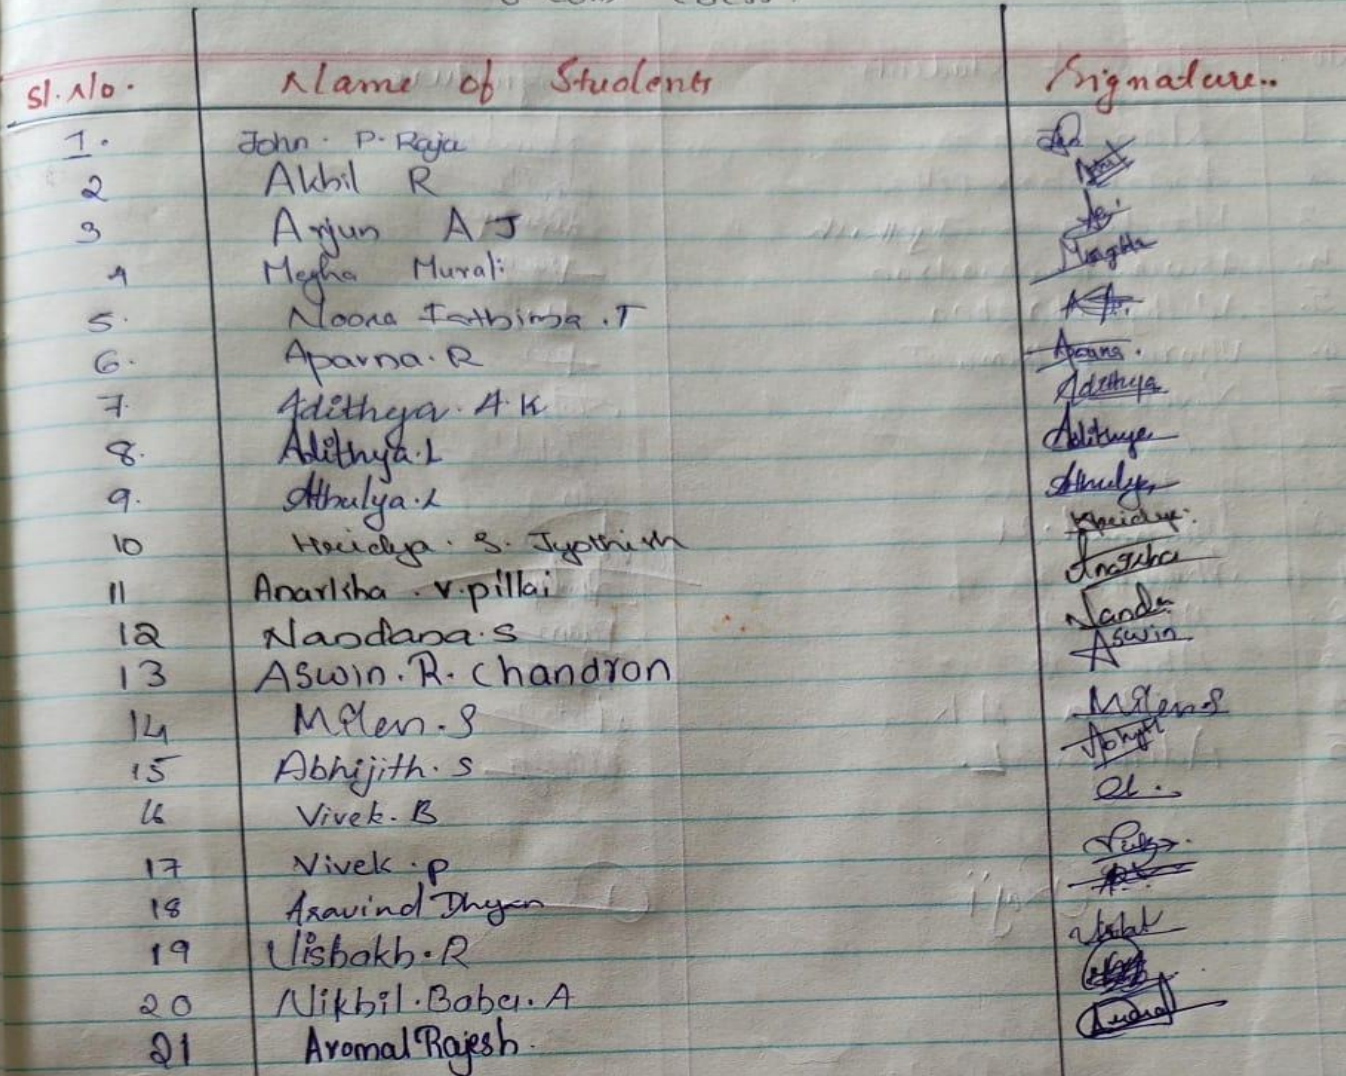 Sl. No. Name of Students Signature..
1. John. P. Raju
2 Akhil R
3 Arjun A J
4 Megha Murali
5. Noora Fathima .T
6. Aparna. R Aparna.
7. Adithya. A. K Adithya
8. Adithya. L Adithya
9. Athulya. L Athulya
10 Hridya. S. Jyothish
11 Anarkha. V. pillai
12 Nandana. S Nanda
13 ASwin. R. Chandron Aswin
14 Milen. S Milen S
15 Abhijith. S
16 Vivek. B
17 Vivek. P
18 Aravind Dhyan
19 Vishakh. R
20 Nikhil. Babu. A
21 Aromal Rajesh.